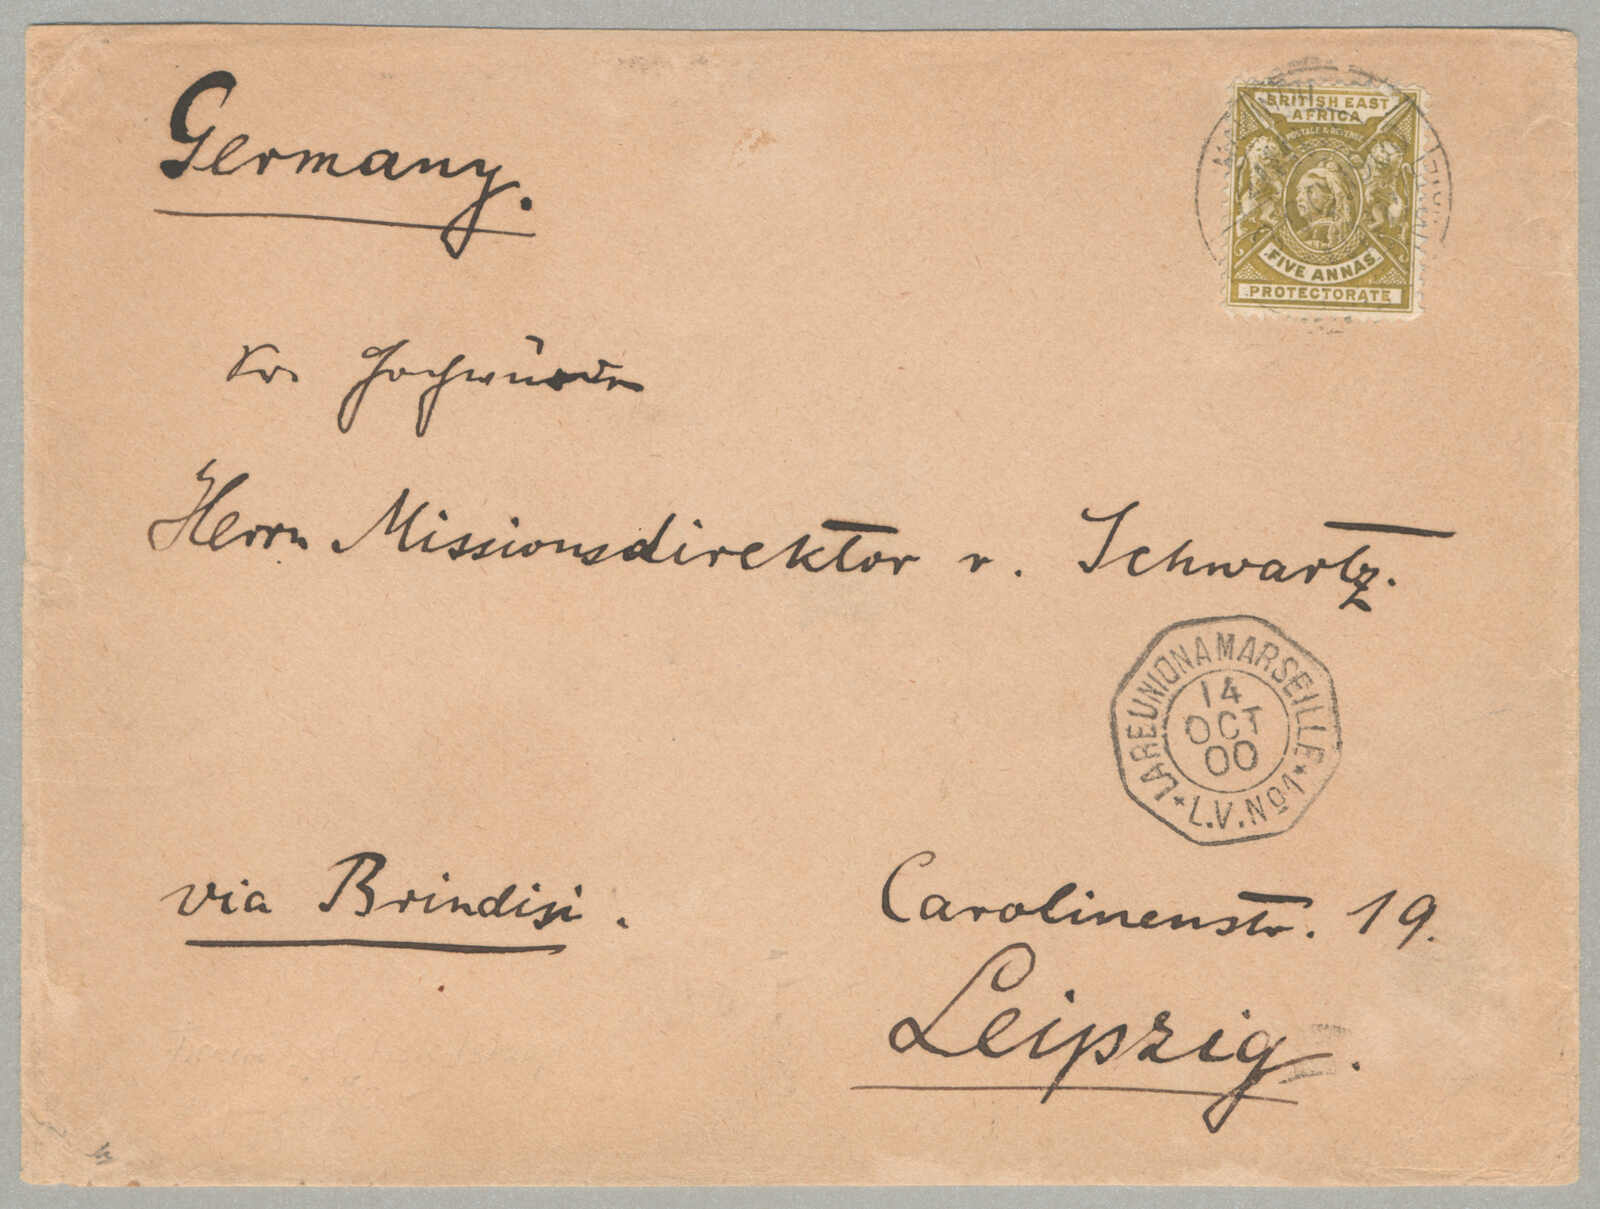 Germany.
BRITISH EAST
AFRICA
POSTAGE & REVENUE
FIVE ANNAS
PROTECTORATE
Sr. Hochwürden
Herrn Missionsdirektor v. Schwartz.
LA REUNION A MARSEILLE
14
OCT
00
* L.V. No1 *
via Brindisi.
Carolinenstr. 19.
Leipzig.